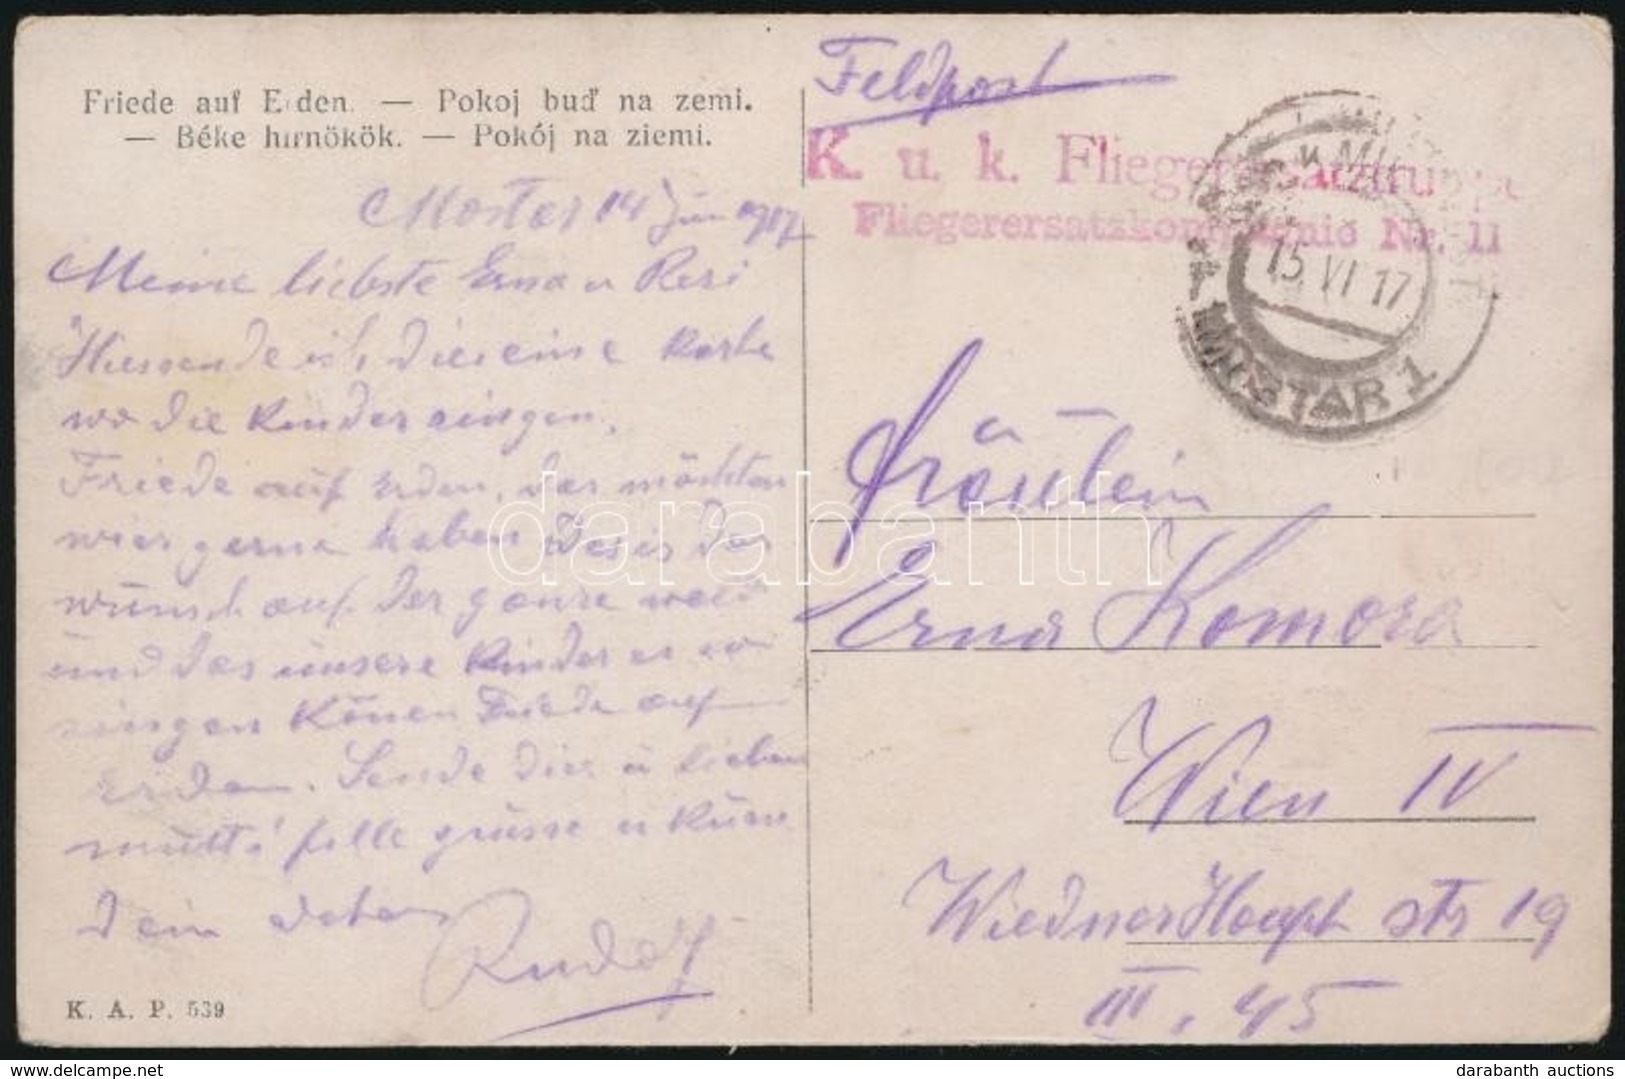 Friede auf Erden. — Pokoj buď na zemi.
— Béke hirnökök. — Pokój na ziemi.
Mostar 14 Jun 1917
Meine liebste Erna u Resi
dieseine Karte
wo die Kinder singen.
Friede auf Erden, das möchten
wier gerne haben Das is der
wunsch auf der ganze welt
und das unsere Kinder es so
singen Könen Friede auf
Erden. Sende dier u lieben
grüsse u Küsse
Dein
Rudolf
K. A. P. 539
Feldpost
K. u. k. Fliegerersatztruppe
Fliegerersatzkompanie Nr. 11
15. VI 17
MOSTAR 1
Fräulein
Erna Komora
Wien IV
Wiedner Haupt str 19
III, 45
darabanth
delcampe.net
darabanth auctions